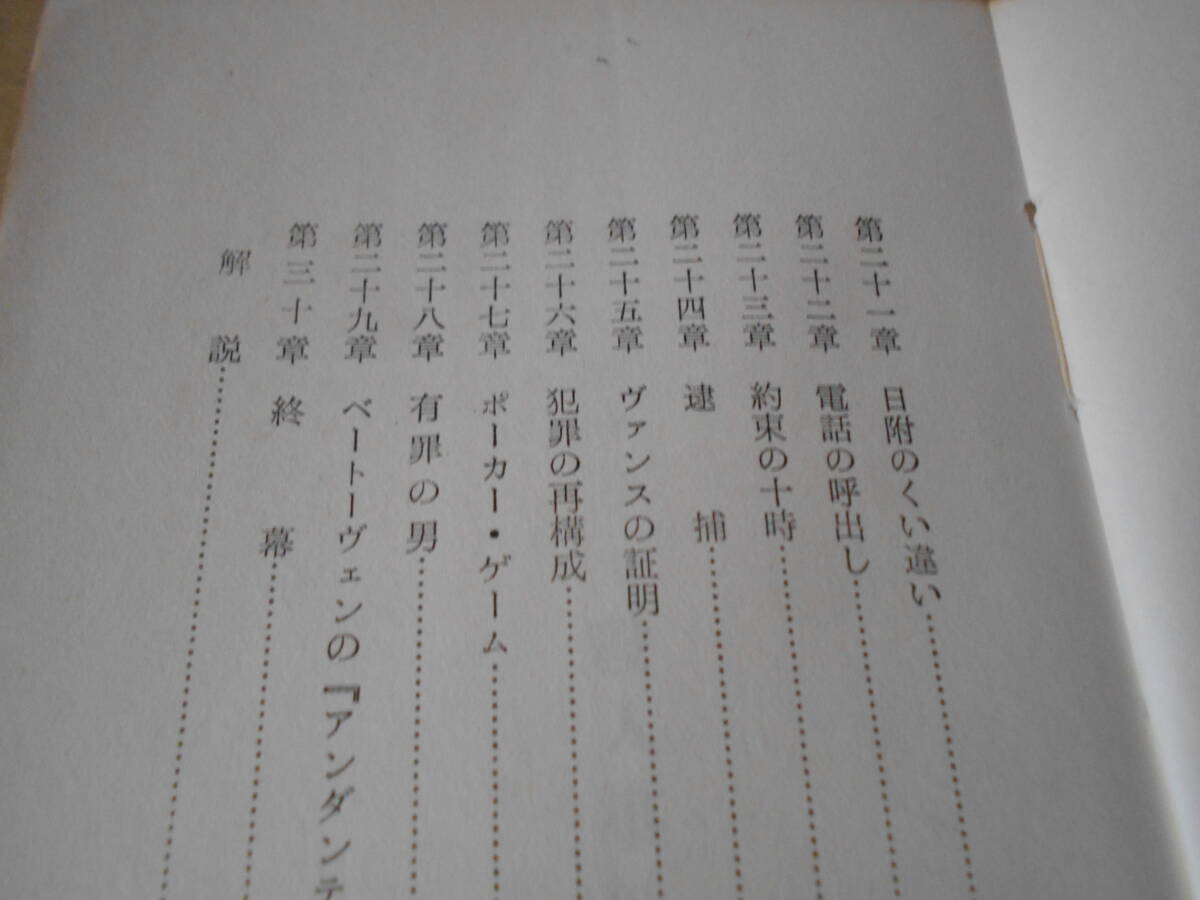 第二十一章 目附のくい違い……………
第二十二章 電話の呼出し……………
第二十三章 約束の十時……………
第二十四章 逮捕……………
第二十五章 ヴァンスの証明……………
第二十六章 犯罪の再構成……………
第二十七章 ポーカー・ゲーム……………
第二十八章 有罪の男……………
第二十九章 ベートーヴェンの『アンダンテ
第三十章 終幕……………
解説……………